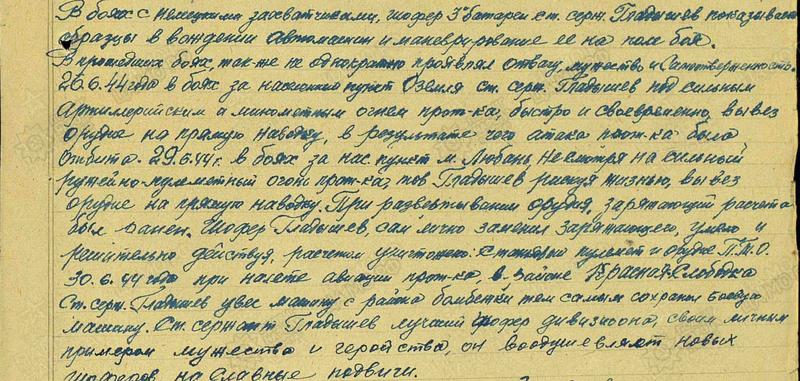 В боях с немецкими захватчиками, шофер 3й батареи ст. серж. Гладышев показывает
образцы в вождении автомашин и маневрирование ее на поле боя.
В прошедших боях так же не однократно проявлял отвагу, мужество и самоотверженность.
26.6.44 года в боях за населенный пункт Оземля ст. серж. Гладышев под сильным
артиллерийским и минометным огнем прот-ка, быстро и своевременно вывез
орудие на прямую наводку, в результате чего атака прот-ка была
отбита. 29.6.44 г. в боях за нас. пункт м. Любань, несмотря на сильный
ружейно-пулеметный огонь прот-ка, тов Гладышев рискуя жизнью, вывез
орудие на прямую наводку. При развертывании орудия, заряжающий расчета
был ранен. Шофер Гладышев, сам лично заменил заряжающего, умело и
решительно действуя, расчетом уничтожено: станковый пулемет и орудие П.Т.О.
30.6.44 года при налете авиации прот-ка, в районе Красная-Слободка
Ст. серж. Гладышев увез машину с района бомбежки тем самым сохранил боевую
машину. Ст. сержант Гладышев лучший шофер дивизиона, своим личным
примером мужества и геройства, он воодушевляет новых
шоферов на славные подвиги.